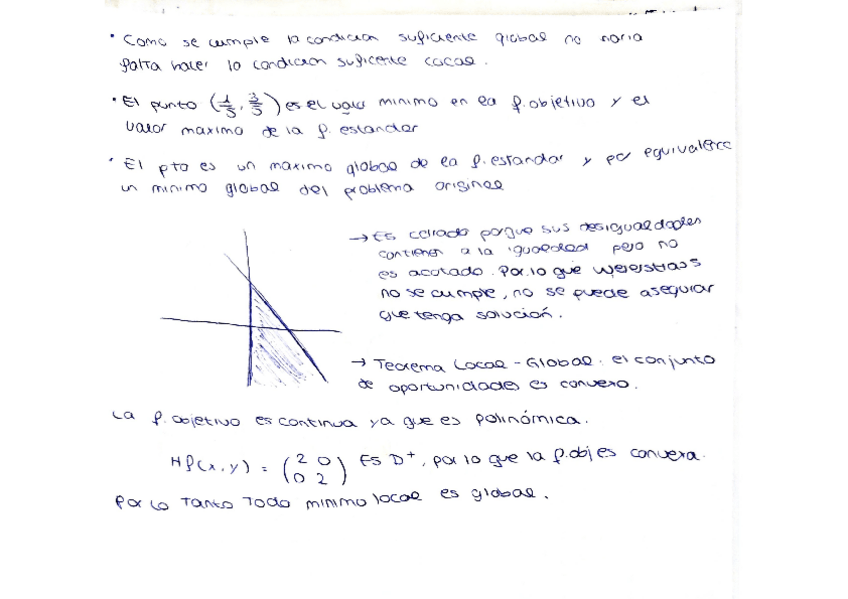 • Como se cumple la condición suficiente global no haría
falta hacer la condición suficente local.
• El punto (1/5, 3/5) es el valor minimo en la f.objetivo y el
valor maximo de la f. estandar
• El pto es un maximo global de la f.estandar y por equivalence
un minimo global del problema original
→ Es cerrado porque sus desigualdades
contienen a la igualdad pero no
es acotado. Por lo que Weierstrass
no se cumple, no se puede asegurar
que tenga solución.
→ Teorema Local - Global. el conjunto
de oportunidades es convexo.
La f.objetivo es continua ya que es polinómica.
Hf(x,y) = (2 0
0 2) Es D+, por lo que la f.obj es convexa.
Por lo Tanto Todo minimo local es global.